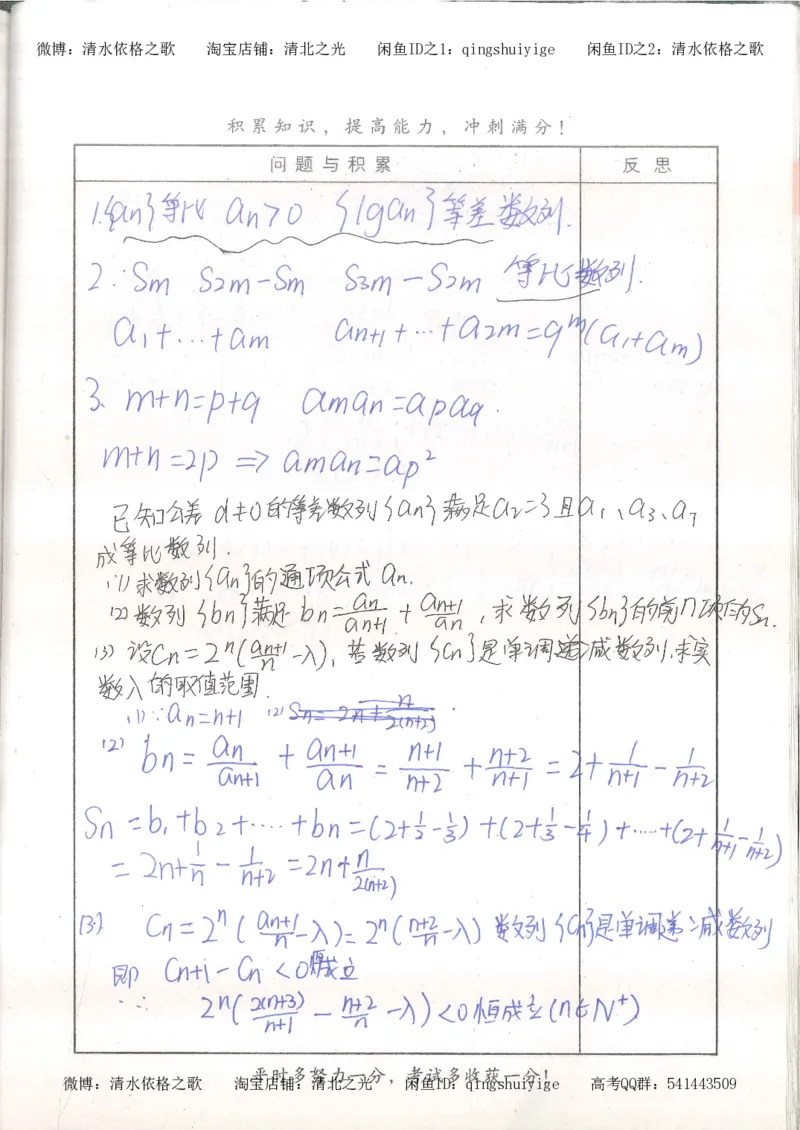 微博：清水依格之歌 淘宝店铺：清北之光 闲鱼ID之1：qingshuiyige 闲鱼ID之2：清水依格之歌
积累知识，提高能力，冲刺满分！
问题与积累 反思
1.{an}等比 an>0 {lgan}等差数列.
2.∵Sm S2m-Sm S3m-S2m 等比数列.
a1+…+am an+1+…+a2m=q^m(a1+am)
3. m+n=p+q aman=apaq.
m+n=2p => aman=ap²
已知公差d≠0的等差数列{an}满足a2=3且a1、a3、a7
成等比数列.
(1)求数列{an}的通项公式an.
(2)数列{bn}满足bn=an/an+1 + an+1/an，求数列{bn}的前n项的为Sn.
(3)设Cn=2^n(an+1/n-λ)，若数列{Cn}是单调递减数列.求实
数λ的取值范围.
(1)∵an=n+1 (2)Sn=2n+n/2(n+2).
(2) bn=an/an+1 + an+1/an = n+1/n+2 + n+2/n+1 = 2+1/n+1 - 1/n+2
Sn=b1+b2+…+bn=(2+1/2-1/3)+(2+1/3-1/4)+……+(2+1/n+1-1/n+2)
=2n+1/n-1/n+2=2n+n/2(n+2)
(3) Cn=2^n(an+1/n-λ)=2^n(n+2/n-λ) 数列{Cn}是单调递减数列
即 Cn+1-Cn<0恒成立
∴ 2^n(2(n+3)/n+1 - n+2/n -λ)<0恒成立(n∈N⁺)
平时多努力一分，考试多收获一分！
微博：清水依格之歌 淘宝店铺：清北之光 闲鱼ID：qingshuiyige 高考QQ群：541443509